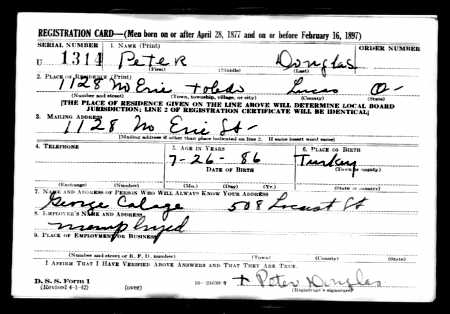 REGISTRATION CARD—(Men born on or after April 28, 1877 and on or before February 16, 1897)
SERIAL NUMBER 1. NAME (Print) ORDER NUMBER
U 1314 Peter Douglas
(First) (Middle) (Last)
2. PLACE OF RESIDENCE (Print)
1128 No Erie Toledo Lucas O-
(Number and street) (Town, township, village, or city) (County) (State)
[THE PLACE OF RESIDENCE GIVEN ON THE LINE ABOVE WILL DETERMINE LOCAL BOARD
JURISDICTION; LINE 2 OF REGISTRATION CERTIFICATE WILL BE IDENTICAL]
3. MAILING ADDRESS
1128 No Erie St-
[Mailing address if other than place indicated on line 2. If same insert word same]
4. TELEPHONE 5. AGE IN YEARS 6. PLACE OF BIRTH
7-26-86 Turkey
DATE OF BIRTH (Town or county)
(Exchange) (Number) (Mo.) (Day) (Yr.) (State or country)
7. NAME AND ADDRESS OF PERSON WHO WILL ALWAYS KNOW YOUR ADDRESS
George Calage 508 Locust St
8. EMPLOYER'S NAME AND ADDRESS
9. PLACE OF EMPLOYMENT OR BUSINESS
(Number and street or R. F. D. number) (Town) (County) (State)
I AFFIRM THAT I HAVE VERIFIED ABOVE ANSWERS AND THAT THEY ARE TRUE.
D. S. S. Form 1
(Revised 4-1-42) (over) Peter Douglas
(Registrant's signature)